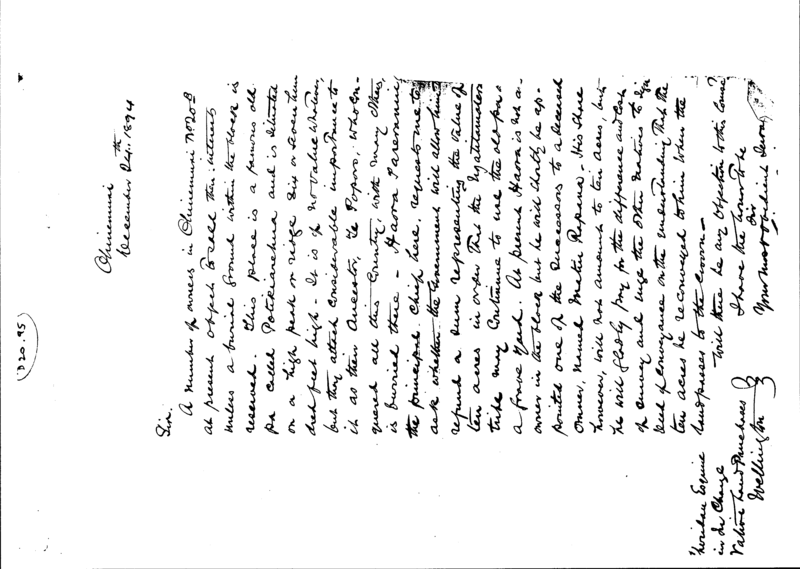 D20.95
Ohinemuri
December 24th 1894
Sir.
A number of owners in Ohinemuri No 20B
at present object to sell their interests
unless a burial ground within the block is
reserved. This place is a famous old
Pa called and is situated
on a high peak or ridge six or seven hun
dred feet high. It is of no value whatever,
but they attach considerable importance to
it as their Ancestor, Te Poporo, who con-
quered all this Country, with many others,
is burried there - Haora Tareranui
the principal Chief here, requests me to
ask whether the Government will allow him
refund a sum representing the value of
ten acres in order that the
tribe may Continue to use the old pa as
a Grave Yard. At present Haora is not a-
owner in the block but he will shortly be ap-
pointed one of the Successors to a deceased
Owner, named Matiu . His Share
however, will not amount to ten acres, but
he will gladly pay for the difference and cost
of survey and urge the Other Natives to sign
deed of Conveyance on the understanding that the
ten acres be reconveyed to him when the
land passes to the Crown -
Will there be any Objection to this Course?
I have the honor to be
Sir
Your most obedient Servant
Sheridan Esquire
in Charge
Native Land Purchases
Wellington